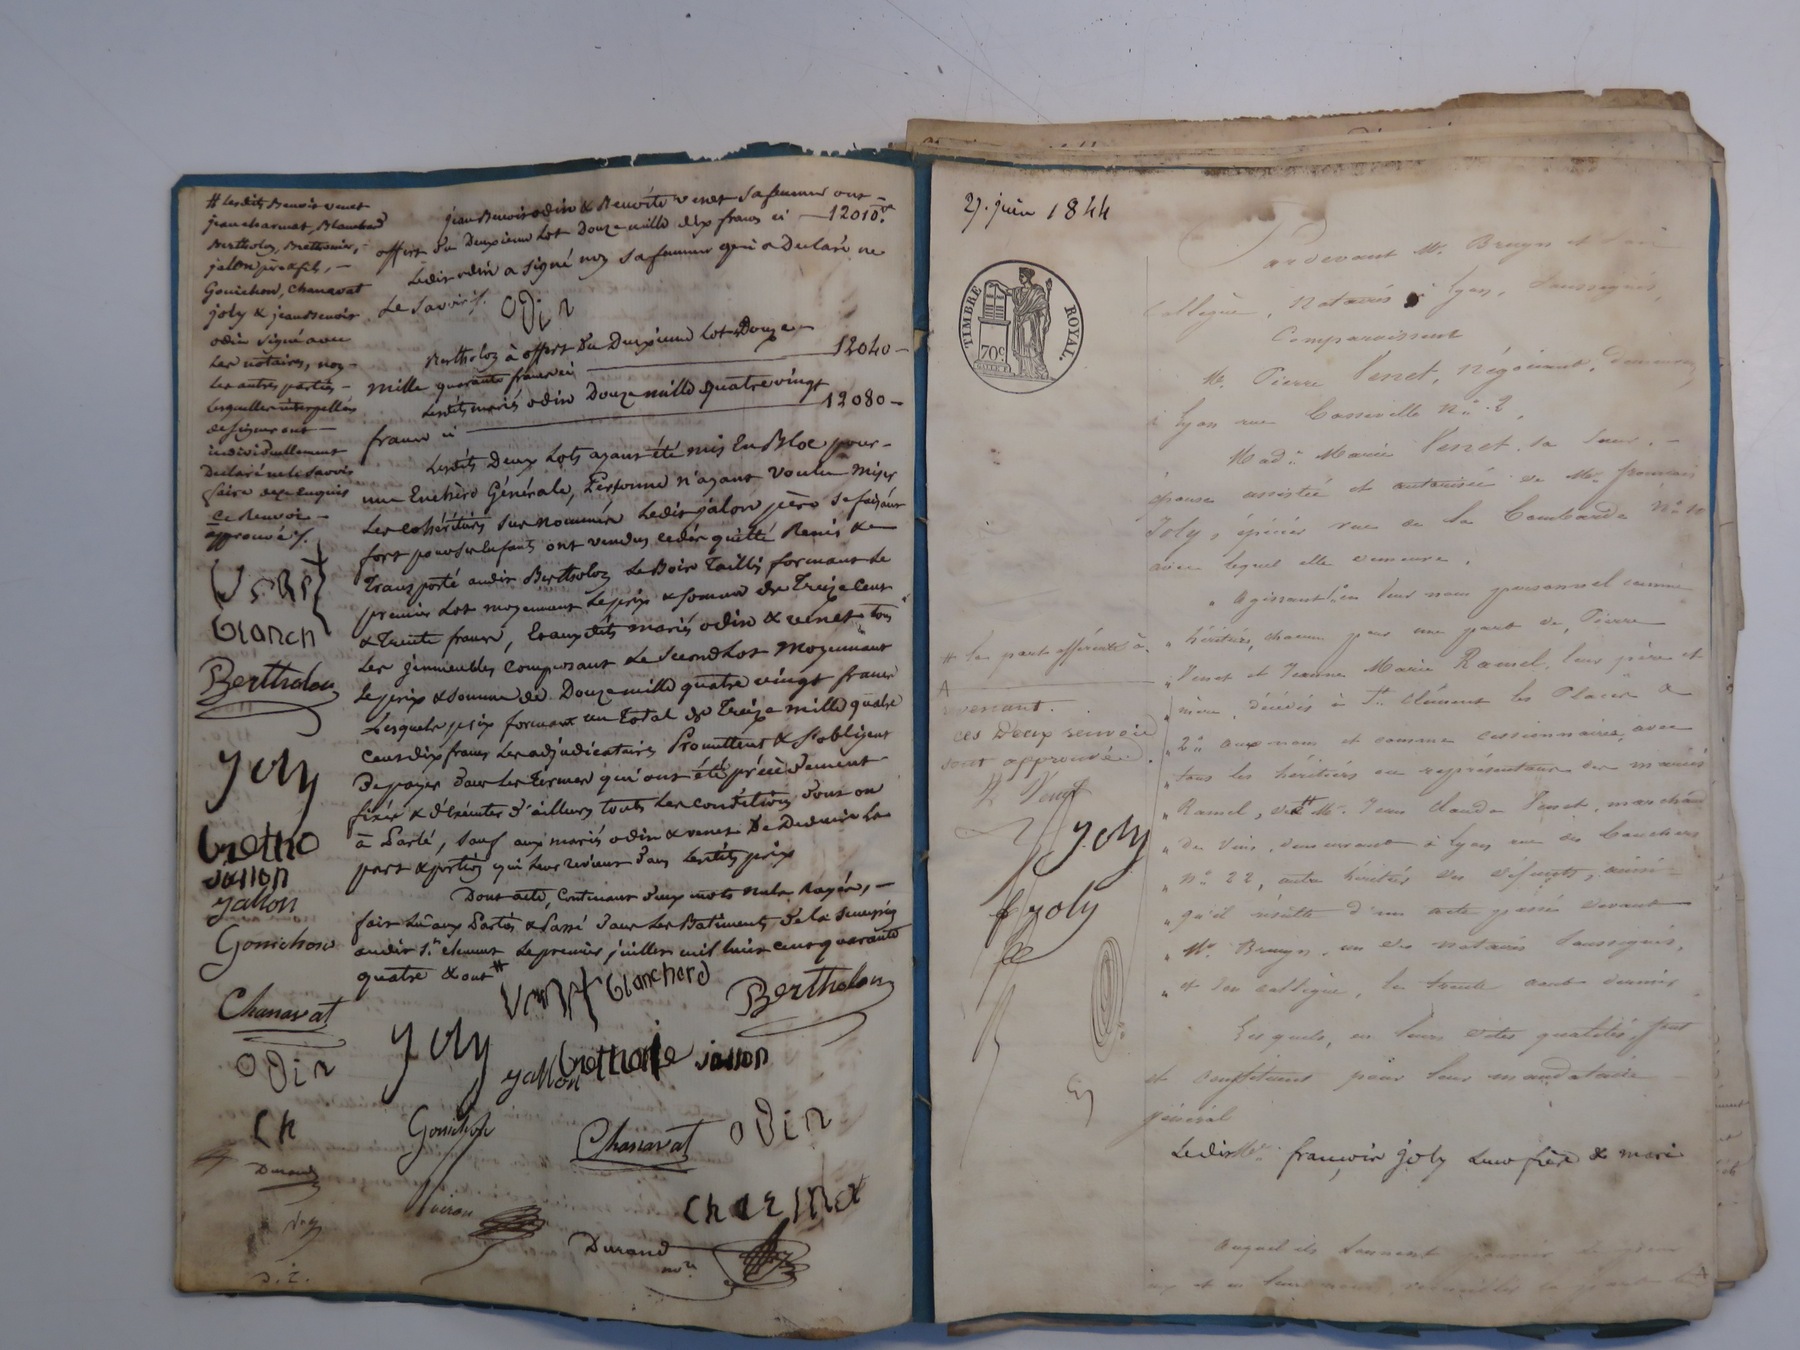 # Lesdits Benoit venet
jean charmat, Blanchard
Bertholon, Brethonier, -
jalon père & fils, -
Gonichon, Chanavat
joly & jean Benoit
odin signé avec
Les notaires, non
Les autres parties -
Lesquelles interpellées
de signer ont
individuellement
Déclaré ne le savoir
faire de ce Enquis
ce Renvoi -
approuvé /.
blanch
Bertholon
joly
bretho
jallon
yallon
Gonichon
Chanavat
odin
Ch
Durand
jean Benoit odin & Benoite venet sa femme ont
offert du Deuxieme Lot Douze mille dix francs ci — 12010 -
Ledit odin a signé non sa femme qui a Déclaré ne
Le Savoir /.
odin
Bertholon à offert Du Deuxieme Lot Douze
mille quarante francs ci — 12040 -
Lesdits mariés odin Douze mille quatre vingt
francs ci — 12080 -
Lesdits Deux Lots ayant été mis En Bloc pour -
une Enchère Générale, Personne n'ayant voulu miser
Les cohéritiers sus nommés Ledit jalon père se faisant
fort pour ses Enfants ont vendu cédé quitté Remis &
Transporté audit Bertholon Le Bois Taillis formant Le
premier Lot moyennant Le prix & somme de Treize Cent
& Trente francs, Et aux dits mariés odin & venet tous
Les jmmeubles composant Le Second Lot moyennant
Le prix & Somme de Douze mille quatre vingt francs
Lesquels prix formant un Total de Treize mille quatre
Cent dix francs Les adjudicataires Promettent & s'obligent
De payer dans Les Termes qui ont été précédemment
fixés & d'Exécuter d'ailleurs toutes Les conditions dont on
à Parlé, sauf aux mariés odin & venet De Deduire La
part & portion qui Leur revient dans Lesdits prix
Dont acte, Contenant deux mots nuls Rayés, -
fait Lû aux Parties & Passé dans Les Batiments de la Succession
audit St. clement Le premier juillet mil huit cent quarante
quatre & ont #
blanchard
Bertholon
joly
yallon
brethonie
jallon
Gonichon
Chanavat
odin
charmat
Durand
nore
27. juin 1844
TIMBRE ROYAL.
70c.
Pardevant Me. Bruyn et son
Collègue, Notaires à Lyon, Soussignés,
Comparaissent
Mr. Pierre Venet, Négociant, demeurant
à Lyon rue No. 2,
Made. Marie Venet, sa Sœur, -
épouse assistée et autorisée de Mr. françois
Joly, épicier rue de la Lombarde No. 10
avec lequel elle demeure.
" Agissant 1o. en leur nom personnel comme
" héritiers, chacun pour une part de, Pierre
" Venet et Jeanne Marie Ramel, leurs père et
" mère, décédés à St. Clément les Places &
" 2o. aux nom et comme cessionnaires, avec
" tous les héritiers ou représentans des mariés
" Ramel, dudt. Mr. Jean Claude Venet, marchand
" de Vins, demeurant à Lyon rue des Bouchers
" No. 22, autre héritier des défunts, ainsi -
" qu'il résulte d'un acte passé devant
" Me. Bruyn, un des notaires Soussignés,
" et son collègue, le trente août dernier.
Lesquels, en leurs dites qualités, font
et constituent pour leur mandataire -
général
Ledit Mr. françois joly Leur frère & mari
Auquel ils donnent pouvoir de pour
# la part afférente à
A
venant.
ces Deux renvois
sont approuvés.
P. Venet
J. joly
f joly